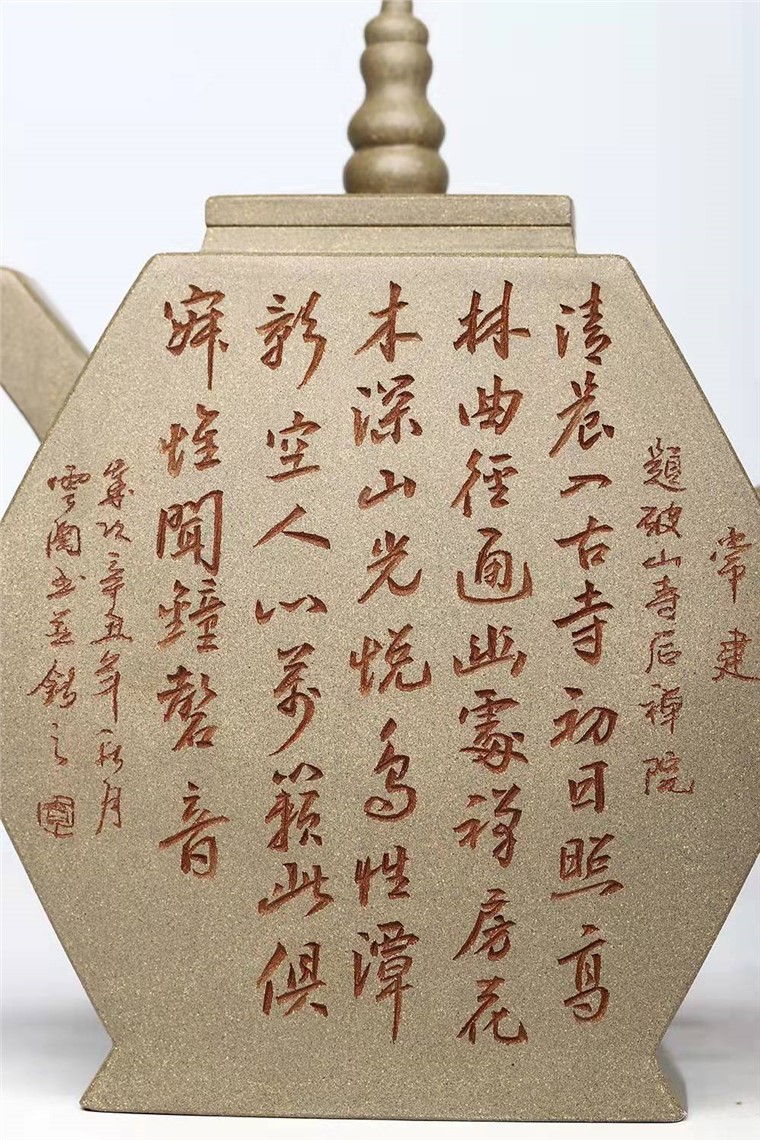 常建
題破山寺后禪院
清晨入古寺初日照高
林曲徑通幽處禪房花
木深山光悦鳥性潭
影空人心萬籟此俱
寂惟聞鐘磬音
歲次辛丑年秋月
雲書並之